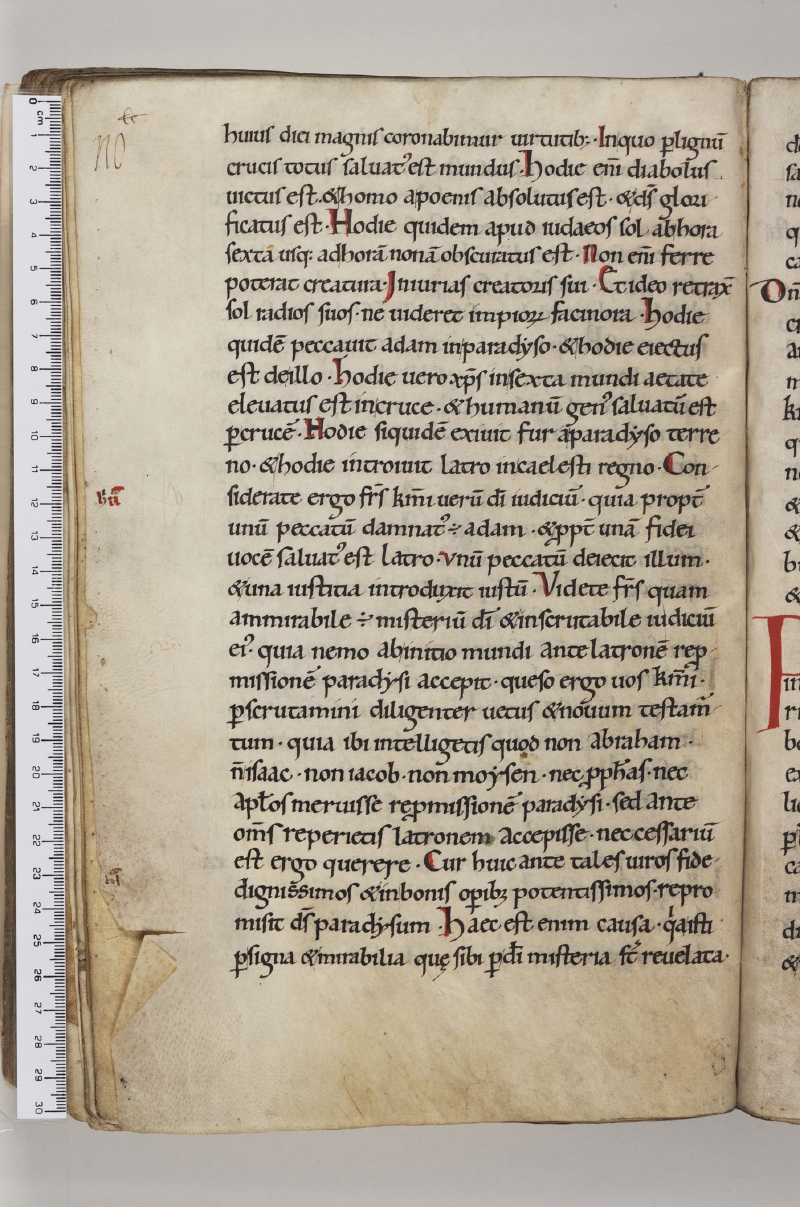 huius diei magnis coronabimur uirtutib; · Inquo ꝑlignū
crucis totus saluat᾽est mundus · Hodie eni̅ diabolus
uictus est · &homo apoenis absolutus est · &ds̅ glori
ficatus est · Hodie quidem apud iudaeos sol abhora
sexta usq; adhorā nonā obscuratus est · Non eni̅ ferre
poterat creatura · Iniurias creatoris sui · Et ideo retrax̅
sol radios suos · ne uideret impioꝝ facinora · Hodie
quidē peccauit adam inparadyso · &hodie eiectus
est deillo · Hodie uero xp̅s insexta mundi aetate
eleuatus est incruce · &humanū gen᾽ saluatū est
ꝑcrucē · Hodie siquidē exiuit fur aparadyso terre
no · &hodie introiuit latro incaelesti regno · Con
siderate ergo frs̅ km̅i uerū di̅ iudiciū · quia propt̅
unū peccatū damnat᾽ ÷ adam · &ꝓpt̅ unā fidei
uocē saluat᾽ est latro · Vnū peccatū deiecit illum ·
&una iustitia introduxit iustū · Videte frs̅ quam
ammirabile ÷ misteriū di̅ &inscrutabile iudiciū
ei᾽ · quia nemo abinitio mundi ante latronē rep
missionē paradysi accepit · queso ergo uos km̅i ·
ꝑscrutamini diligenter uetus &nouum testam̅
tum · quia ibi intelligetis quod non abraham ·
n̅ isaac · non iacob · non moysen · nec ꝓph̅as · nec
apl̅os meruisse repmissionē paradysi · sed ante
oms̅ reperietis latronem accepisse · neccessariū
est ergo querere · Cur huic ante tales uiros fide
dignissimos &inbonis opib; potentissimos · repro
misit ds̅ paradysum · Haec est enim causa · q̇a isti
ꝑsigna &mirabilia quę sibi ꝑdi̅ misteria st̅ reuelata ·